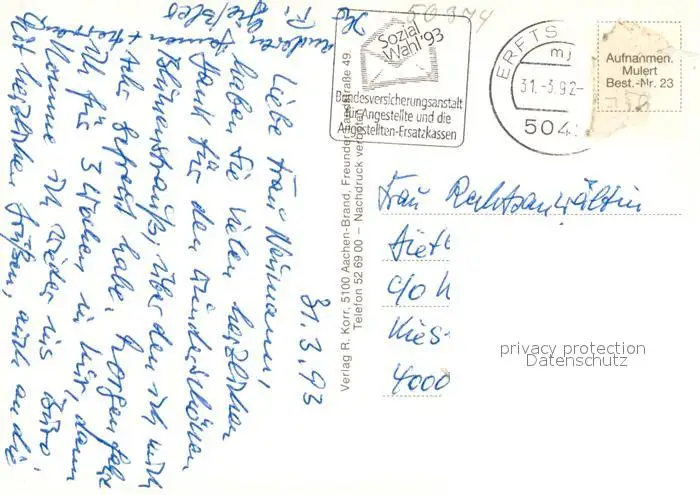 31.3.93
Liebe Frau Neumann,
haben Sie vielen herzlichen
Dank für den wunderschönen
Blumenstrauß, über den ich mich
sehr gefreut habe. Morgen fahre
ich für 3 Wochen in Kur, dann
komme ich wieder ins Büro
Mit herzlichen Grüßen, auch an die
anderen Damen + Herren
Ihre
50974
Sozial
Wahl '93
Bundesversicherungsanstalt
für Angestellte und die
Angestellten-Ersatzkassen
ERFTS
mj
31.-3.93-
504
Aufnahmen.
Mulert
Best.-Nr. 23
Verlag R. Korr, 5100 Aachen-Brand, Freunder Landstraße 49.
Telefon 52 69 00 – Nachdruck verboten
Frau Rechtsanwältin
c/o
Kies
4000
privacy protection
Datenschutz